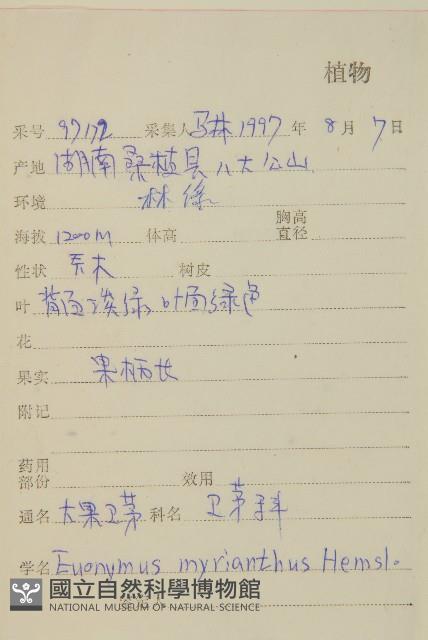 植物
采号 97172 采集人 马林 1997年 8月 7日
产地 湖南桑植县八大公山
环境 林缘
胸高
海拔 1200M 体高 直径
性状 乔木 树皮
叶 背面淡绿, 叶面绿色
花
果实 果柄长
附记
药用
部份 效用
通名 大果卫茅 科名 卫茅科
学名 Euonymus myrianthus Hemsl.
國立自然科學博物館
NATIONAL MUSEUM OF NATURAL SCIENCE